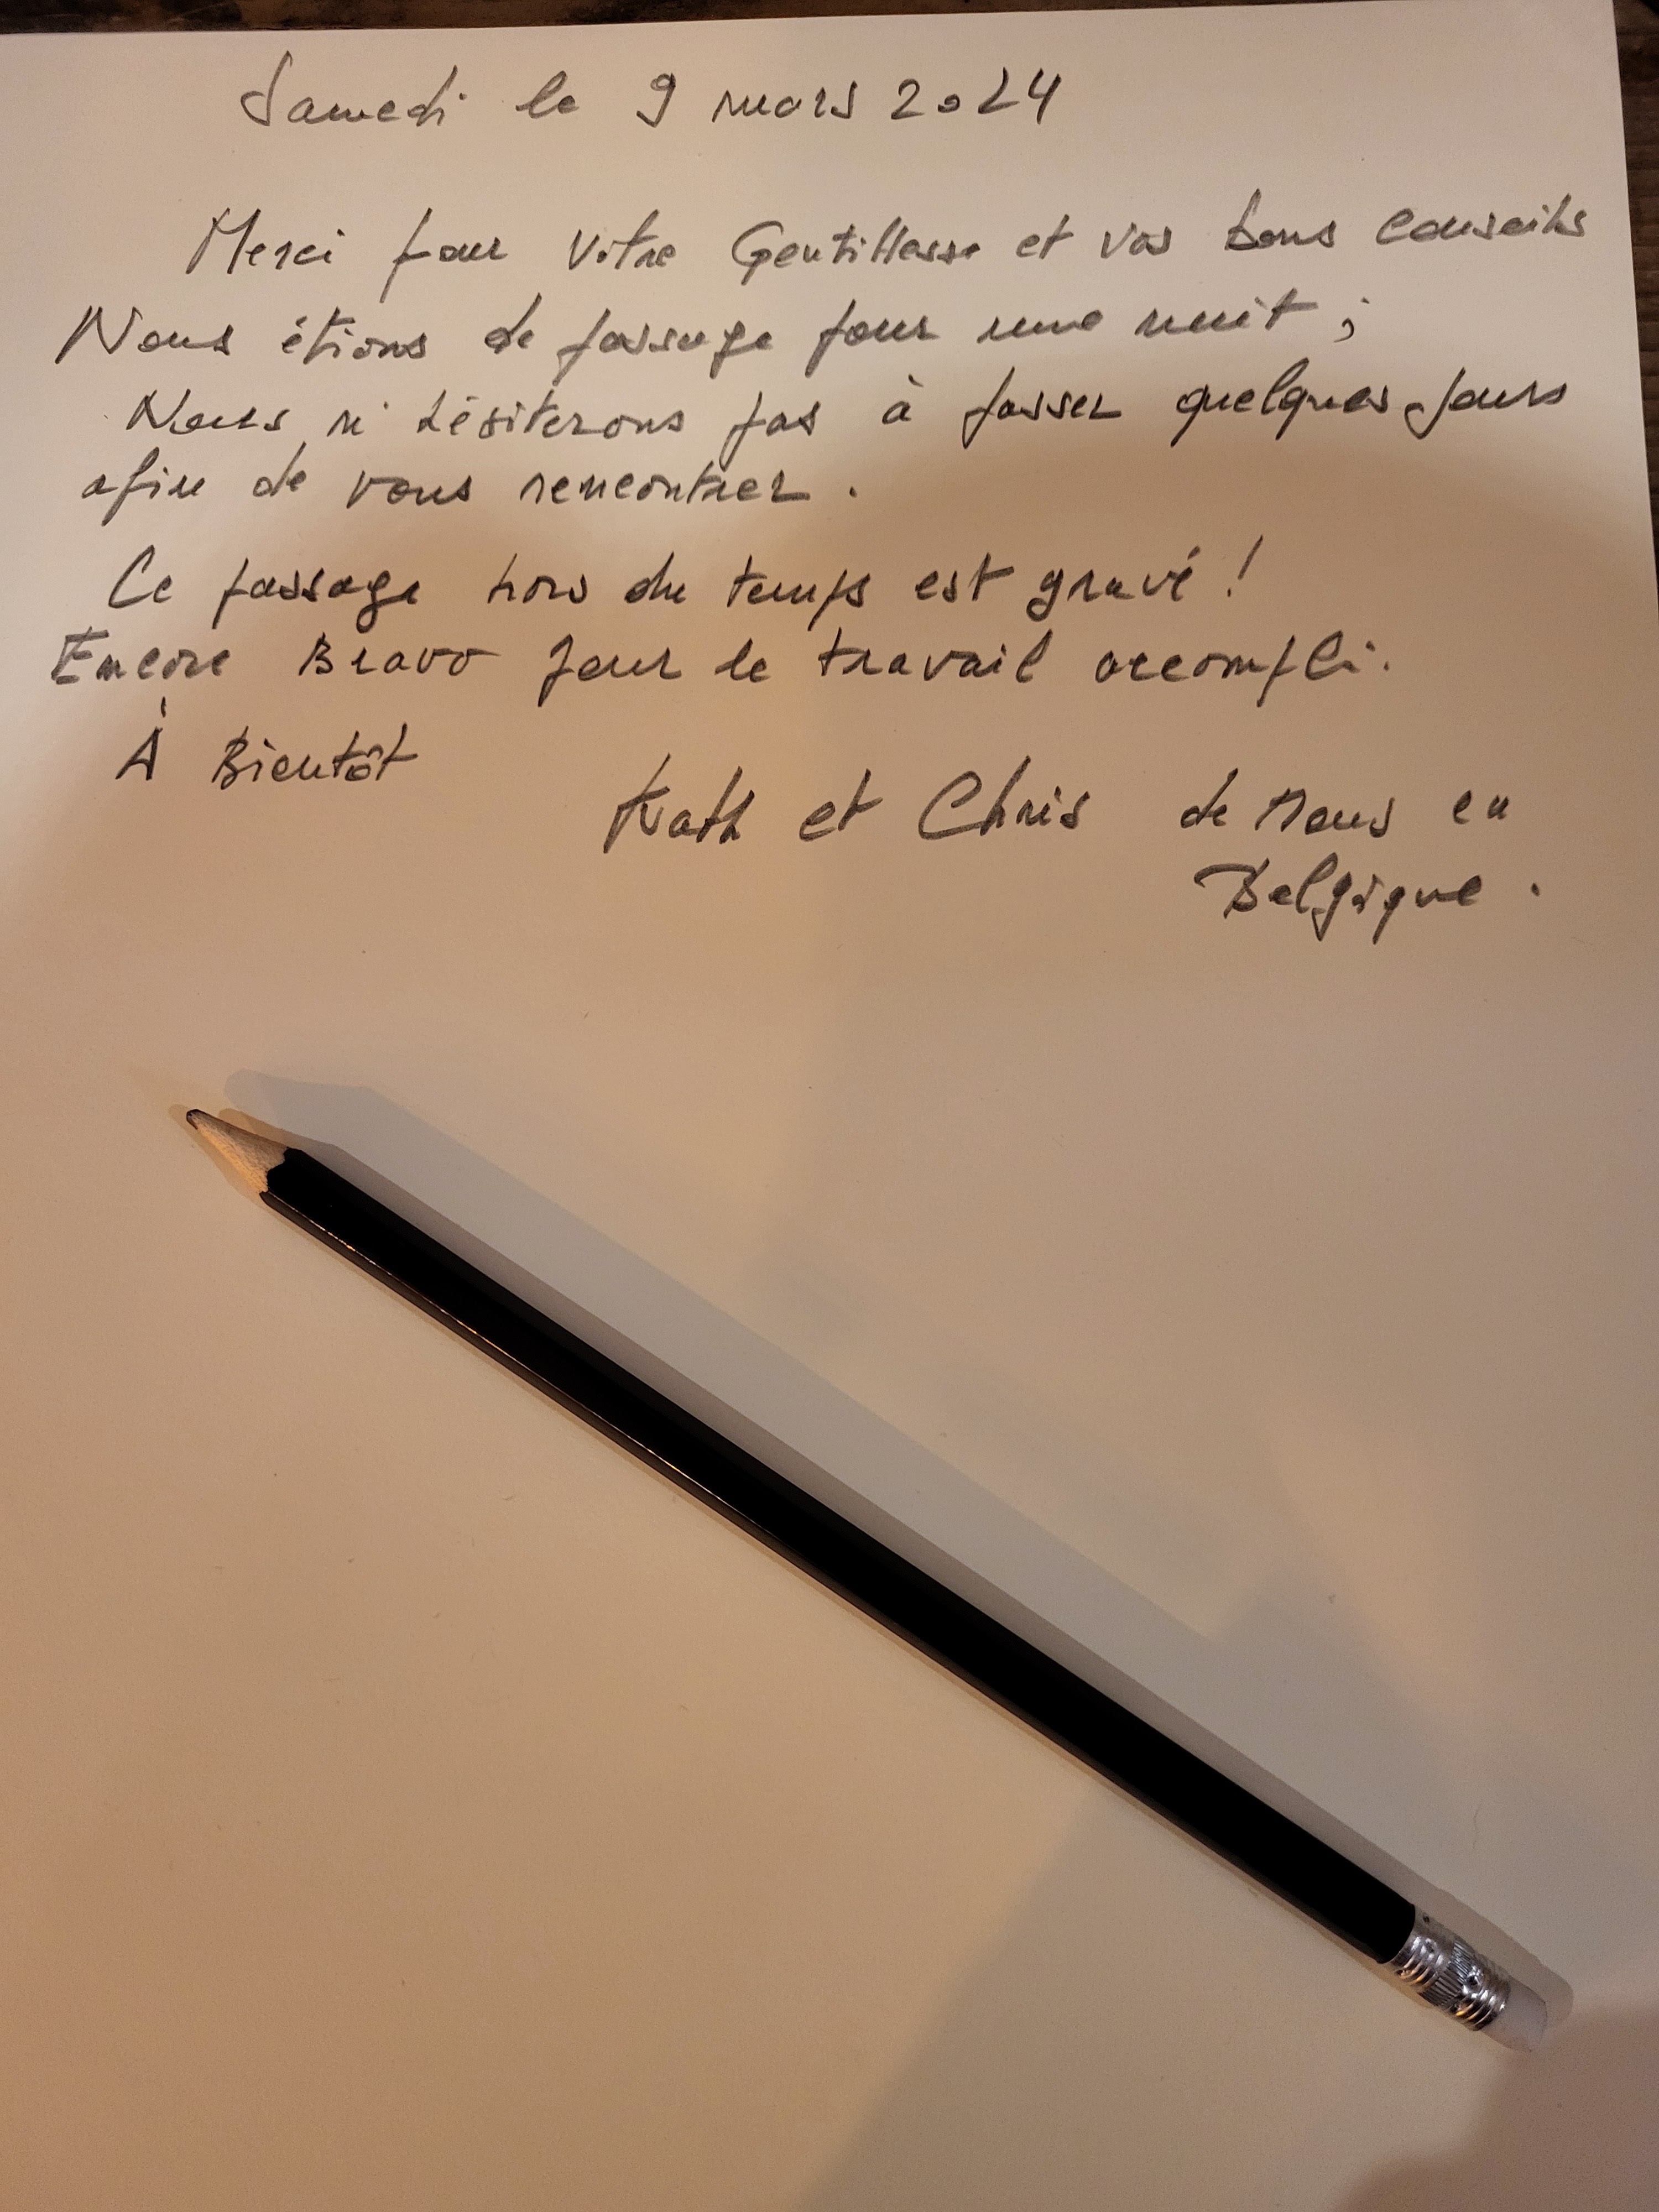 Samedi le 9 mars 2024
Merci pour votre Gentillesse et vos bons conseils
Nous étions de passage pour une nuit ;
Nous n'hésiterons pas à passer quelques jours
afin de vous rencontrer .
Ce passage hors du temps est gravé !
Encore Bravo pour le travail accompli .
À Bientôt
Nath et Chris de Mons en
Belgique .